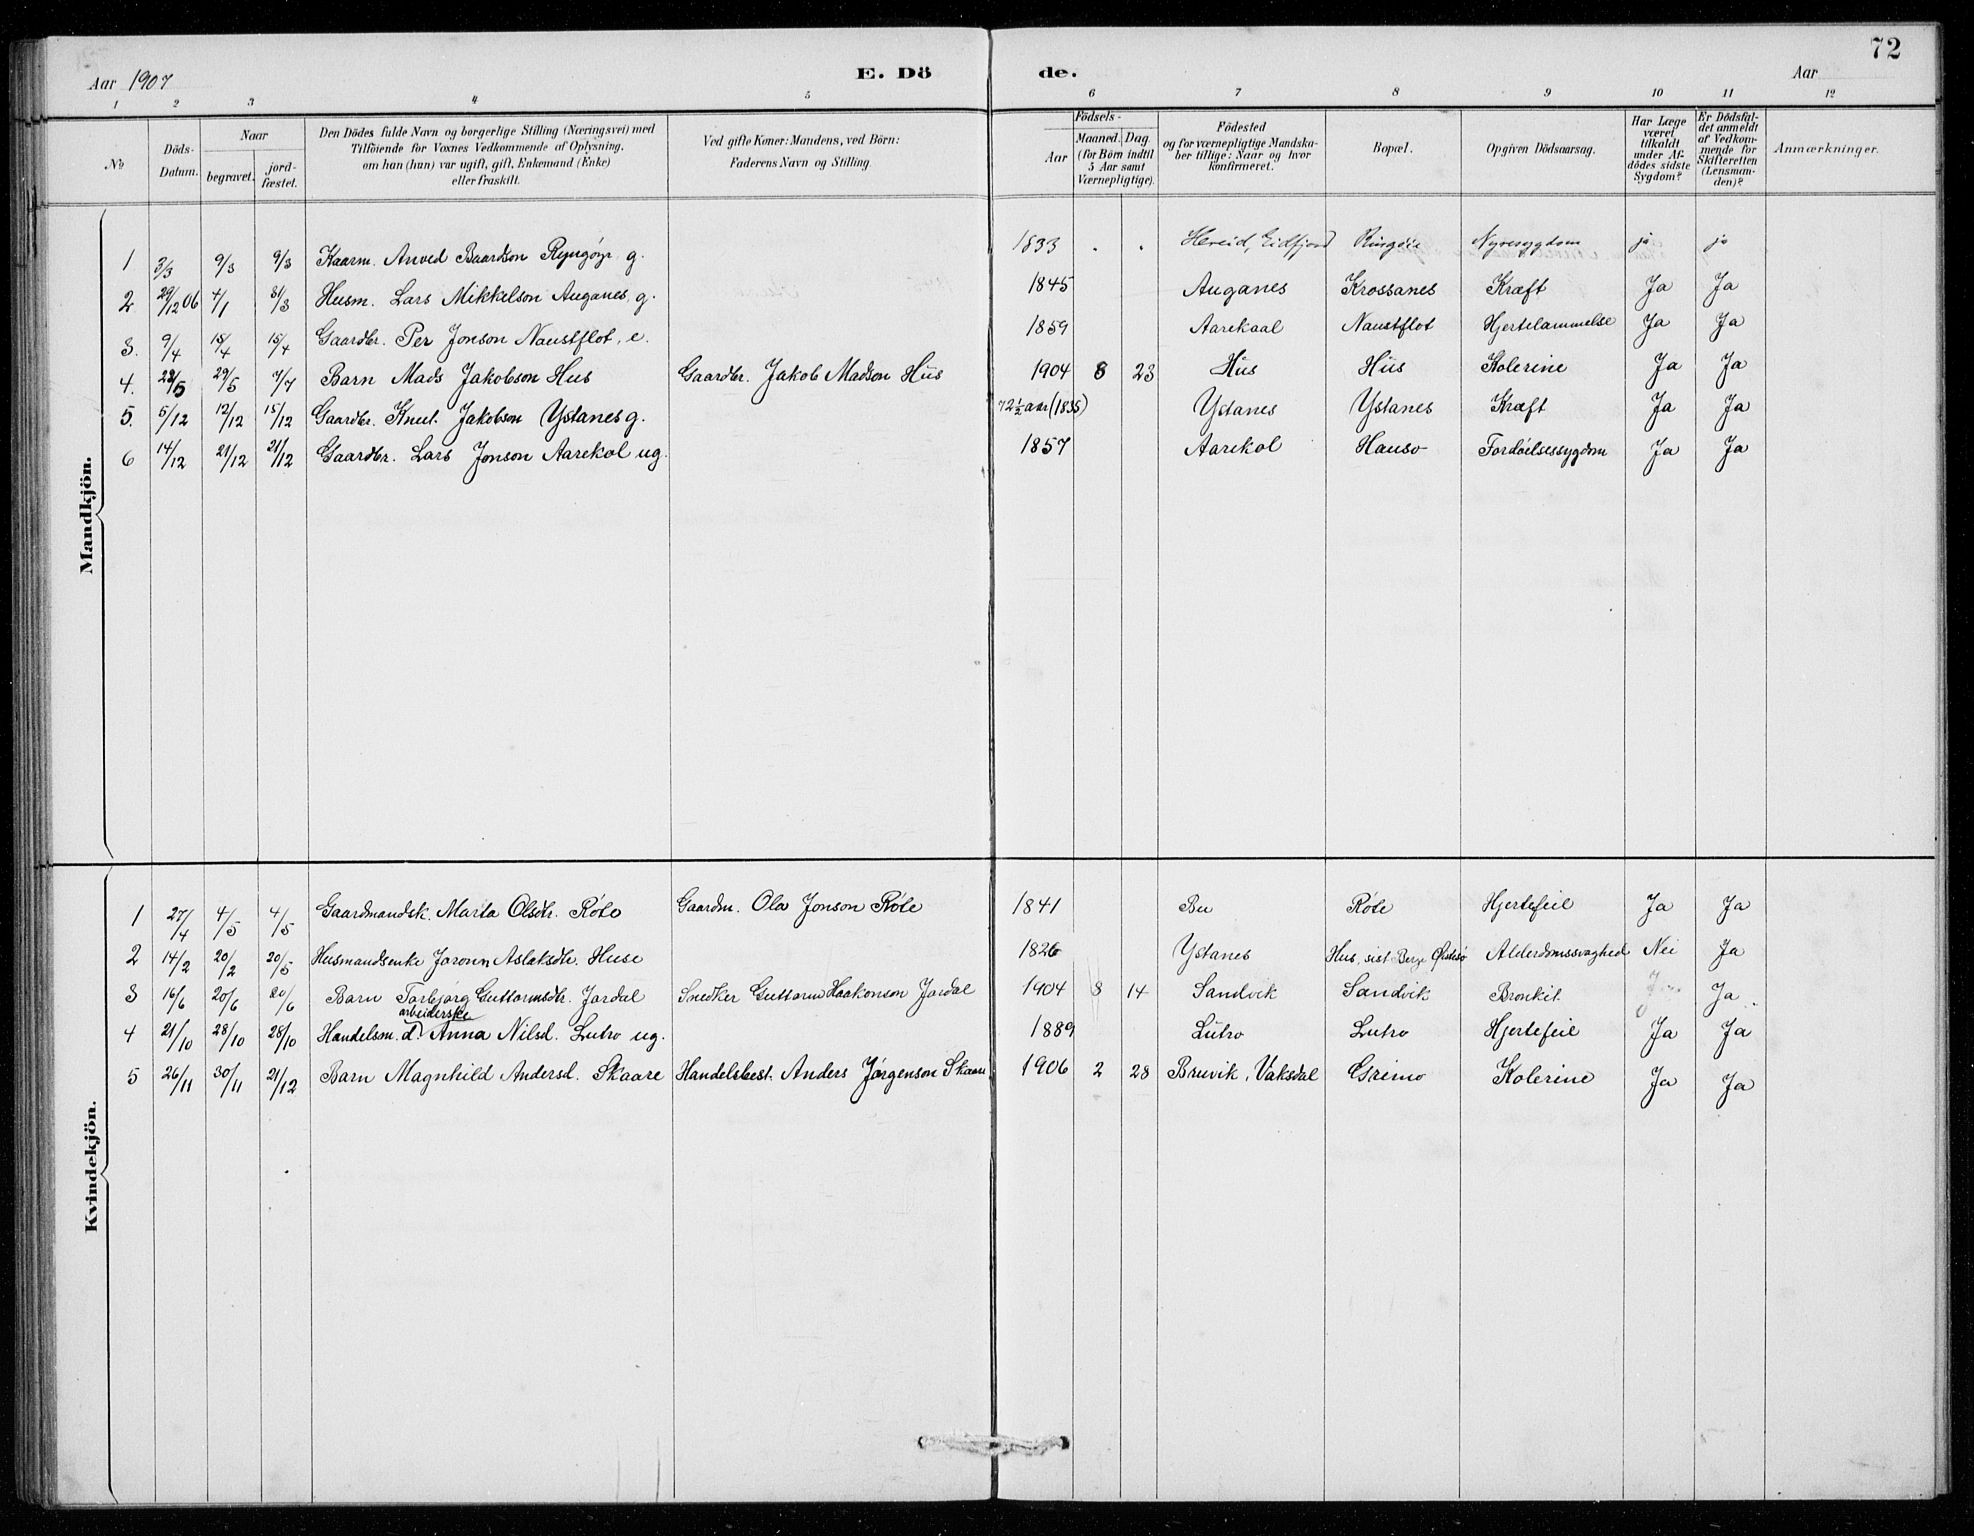 72
Aar 1907 E. Dö de. Aar
1 2 3 4 5 6 7 8 9 10 11 12
No
Döds-Datum.
Naar
begravet.
jord-fæstet.
Den Dödes fulde Navn og borgerlige Stilling (Næringsvei) med
Tilföiende for Voxnes Vedkommende af Oplysning,
om han (hun) var ugift, gift, Enkemand (Enke)
eller fraskilt.
Ved gifte Koner: Mandens, ved Börn:
Faderens Navn og Stilling.
Födsels-
Aar
Maaned. Dag.
(for Börn indtil
5 Aar samt
Værnepligtige).
Födested
og for værnepligtige Mandska-
ber tillige: Naar og hvor
konfirmeret.
Bopæl.
Opgiven Dödsaarsag.
Har Læge
været
tilkaldt
under Af-
dödes sidste
Sygdom?
Er Dödsfal-
det anmeldt
af Vedkom-
mende for
Skifteretten
(Lensman-
den)?
Anmærkninger.
Mandkjön.
1 3/3 9/3 9/3 Kaarm. Anved Baardson Ryngöyr g. 1833 . . Hereid, Eidfjord Ringöie Nyresygdom ja ja
2 29/12 06 4/1 31/3 Husm. Lars Mikkelson Auganes, g. 1845 Auganes Krossanes Kræft Ja Ja
3. 9/4 15/4 15/4 Gaardbr. Per Jonson Naustflot, e. 1859 Aarekaal Naustflot Hjertelammelse Ja Ja
4. 23/5 29/5 7/7 Barn Mads Jakobson Hus Gaardbr. Jakob Madson Hus 1904 8 23 Hus Hus Kolerine Ja Ja
5. 5/12 12/12 15/12 Gaardbr. Knut Jakobson Ystanes g. 72 1/2 aar (1835) Ystanes Ystanes Kræft Ja Ja
6 14/12 21/12 21/12 Gaardbr. Lars Jonson Aarekol ug. 1857 Aarekol Hauso Fordöielsessygdom Ja Ja
Kvindekjön.
1 27/4 4/5 4/5 Gaardmandsk. Marta Olsdtr. Röte Gaardm. Ola Jonson Röte 1841 Bu Röte Hjertefeil Ja Ja
2 14/2 20/2 20/5 Husmandsenke Joronn Aslaksdtr. Huse 1826 Ystanes Hus, sist Berge Östesö Alderdomssvaghed Nei Ja
3 16/6 20/6 20/6 Barn Torbjörg Guttormsdtr. Jordal Snedker Guttorm Haakonson Jordal 1904 8 14 Sandvik Sandvik Bronkit Ja
arbeiderske
4 21/10 28/10 28/10 Handelsm. d. Anna Nilsd. Lutro ug. 1889 Lutro Lutro Hjertefeil Ja Ja
5 26/11 30/11 21/12 Barn Magnhild Andersd. Skaare Handelsbest. Anders Jörgenson Skaare 1906 2 28 Bruvik, Vaksdal Grimo Kolerine Ja Ja